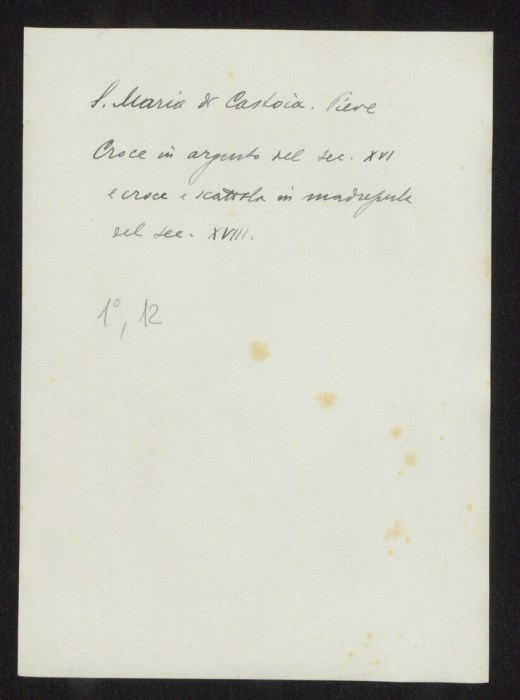 S. Maria di Castoia. Pieve
Croce in argento del sec. XVI
e croce e scattola in madreperla
del sec. XVIII.
1°, 12